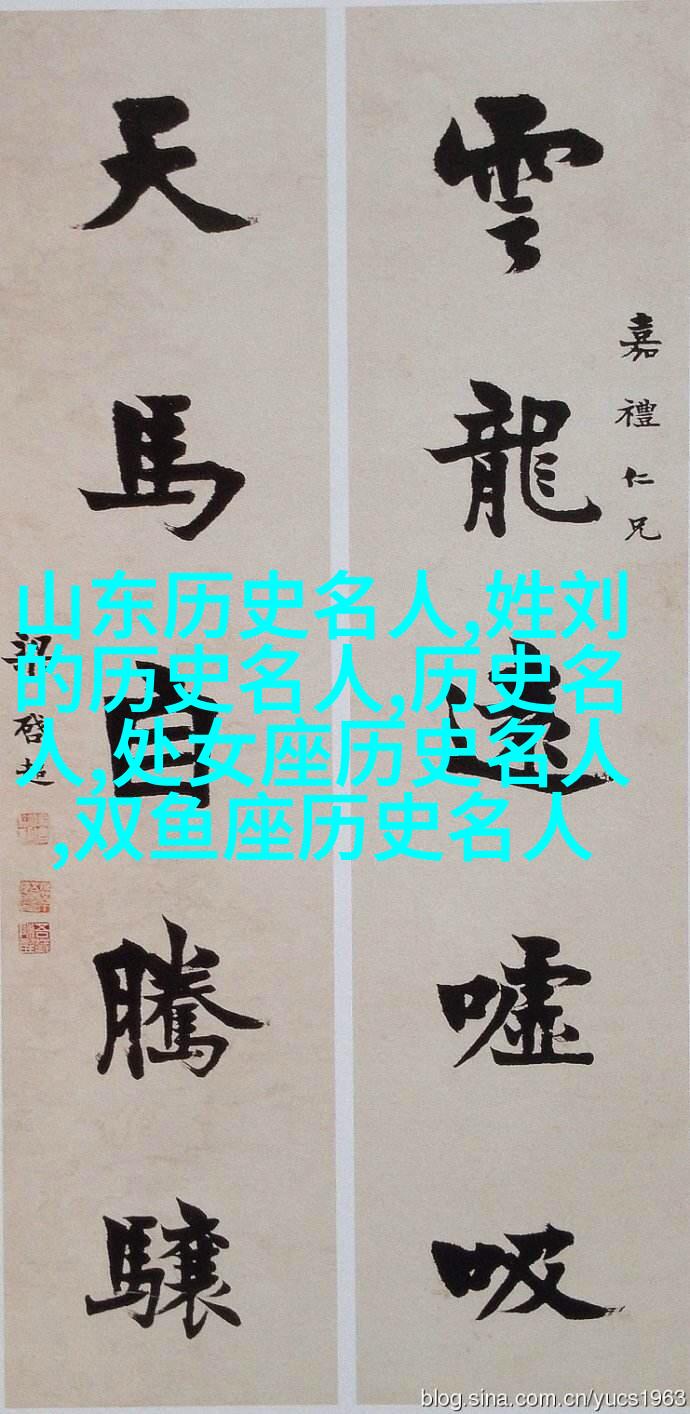 雲龍遠噓吸
嘉禮仁兄
天馬自騰驤
梁啓超
山东历史名人,姓刘
的历史名人,历史名
人,处女座历史名人
,双鱼座历史名人
blog.sina.com.cn/yucs1963